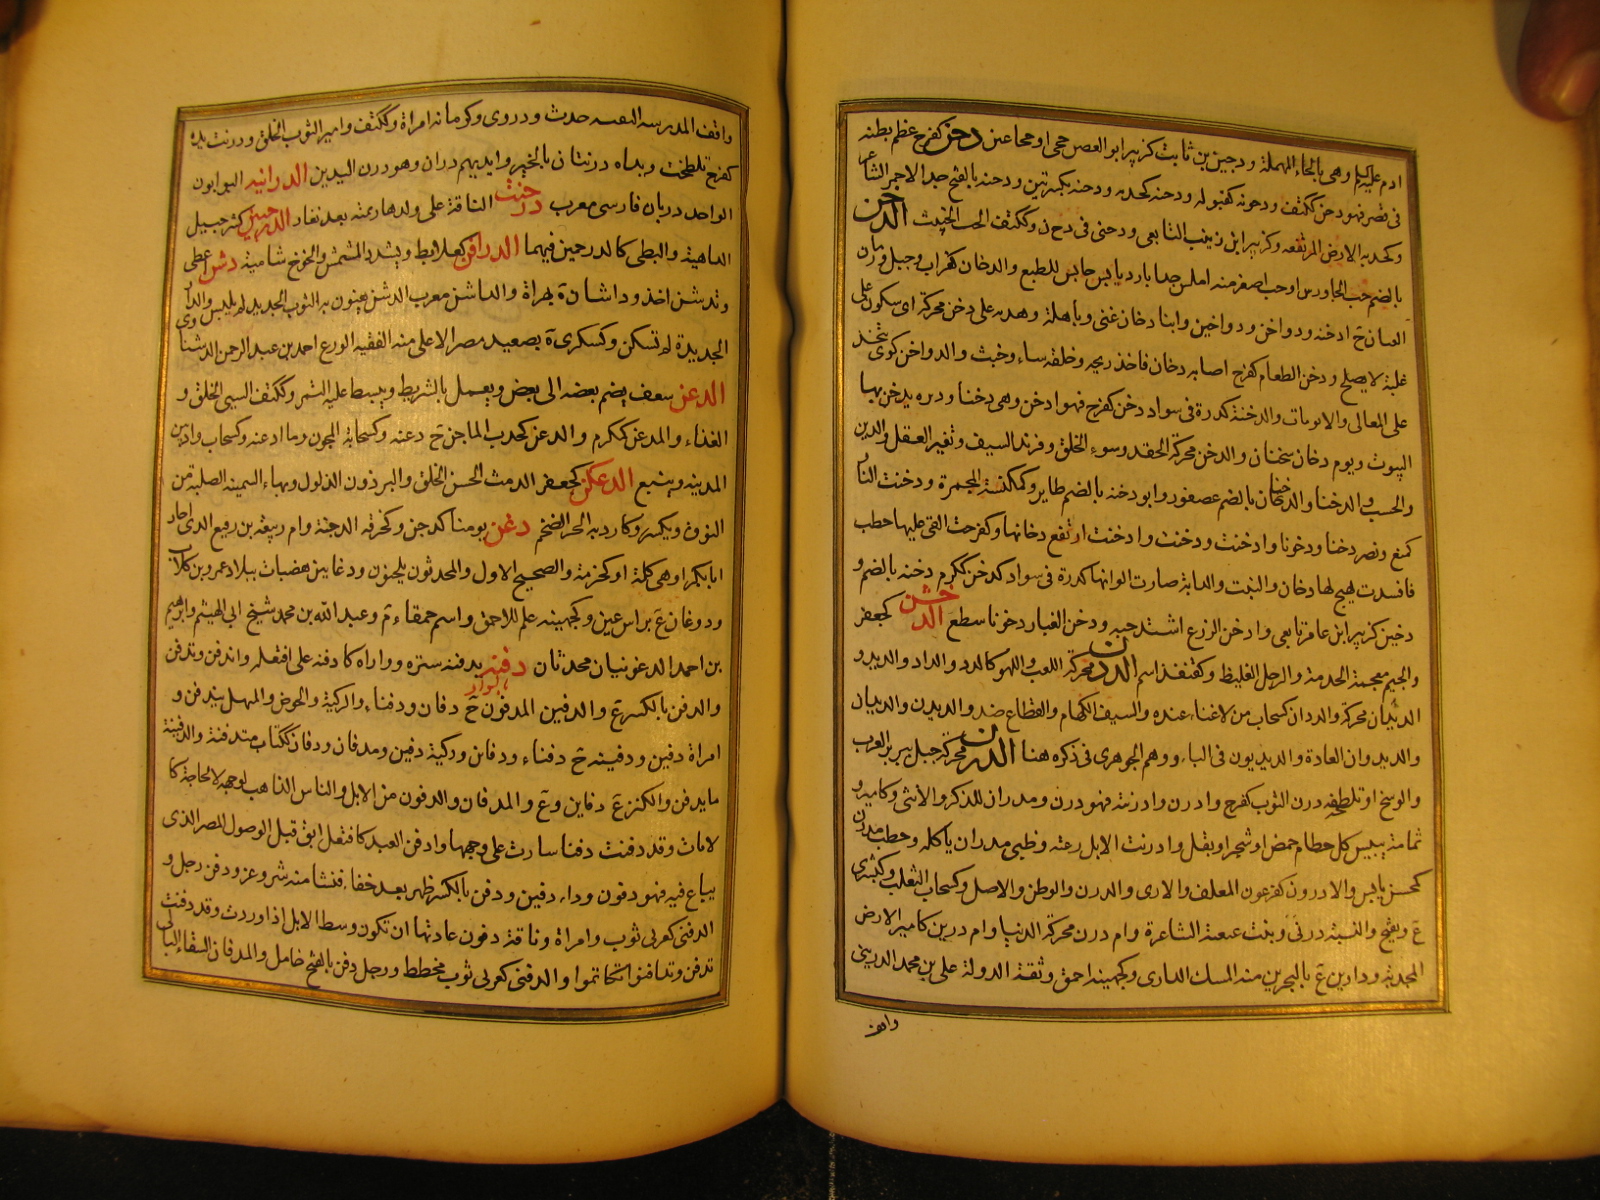 ادم عليه السلم وهى بالحاء المهملة ودجين بن ثابت كزبير ابو الغصن جحى او جحا عين دحن كفرح عظم بطنه
فى قصر فهو دحن ككتف ودحونه كفتوله ودحنه كحدبه ودحنه بكسرتين ودحنه بالفتح جد الاحمر الشاعر
وكحدبه الارض المرتفعه وكزبير ابن زينب التابعى ودحنى فى دح ن وككتف الخب الخبيث الدخن
بالضم حب الجاورس او حب اصغر منه املس جدا بارد يابس حابس للطبع والدخان كغراب وجبل ورمان
العثان ج ادخنه ودواخن ودواخين وابنا دخان غنى وباهلة وهدنه على دخن محركة اى سكون على
غلبة لا يصلح ودخن الطعام كفرح اصابه دخان فاخذ ريحه وخلقه ساء وخبث والدواخن كوى تتخذ
على المقالى والاتونات والدخنة كدرة فى سواد دخن كفرح فهو ادخن وهى دخنا وذريره يدخن بها
البيوت ويوم دخان سخنان والدخن محركة الحقد وسوء الخلق وفرند السيف وتغير العقل والدين
والحسب والدخنا والدخنان بالضم عصفور وابو دخنه بالضم طاير وكمكنسة المجمرة ودخنت النار
كمنع ونصر دخنا ودخونا وادخنت ودخنت وادخنت ارتفع دخانها وكفرحت القى عليها حطب
فافسدت ليهيج لها دخان والنبت والدابة صارت الوانها كدرة فى سواد كدخن ككرم دخنه بالضم و
دخين كزبير ابن عامر تابعى وادخن الزرع اشتد حبه ودخن الغبار دخونا سطع الدخشن كجعفر
والجيم معجمة الحدبة والرجل الغليظ وكقنفذ اسم الددن محركة اللعب واللهو كالدد والددا والديد و
الديدان محركة والددان كسحاب من لاغناء عنده والسيف الكهام والقطاع ضد والديدن والديدان
والديدوان العادة والديدبون فى الباء ووهم الجوهرى فى ذكره هنا الدرن محركة جبل ببربر الغرب
والوسخ او تلطخه درن الثوب كفرح وادرن وادرنته فهو درن ومدران للذكر والانثى وكامير و
ثمامة يبيس كل حطام حمض او شجر او بقل وادرنت الابل رعته وظبى مدران ياكله وحطب مدرن
كمحسن يابس والادرون كفرعون المعلف والارى والدرن والوطن والاصل وكسحاب الثعلب وكبشرى
ع ويفتح والنسبة درنى وبنت عبعبة الشاعرة وام درن محركة الدنيا وام درين كامير الارض
المجدبة ودارين ع بالبحرين منه المسك الدارى وكجهينه احمق وثقة الدولة على بن محمد الدرينى
واقف
واقف المدرسه حدث ودروى وكرمانه امراة وككتف وامير الثوب الخلق ودرنت يده
كفرح تلطخت ويداه درنتان بالخير وايديهم دران وهو درن اليدين الدرابنة البوابون
الواحد دربان فارسى معرب درحنت الناقة على ولدها رئمته بعد نفار الدرخبين كشرحبيل
الداهية والبطى كالدرحين فيهما الدراقن كعلابط ويشدد المشمش والخوخ شامية دشن اعطى
وتدشن اخذ وداشان ة بهراة والداشن معرب الدشن يعنون به الثوب الجديد لم يلبس والدار
الجديدة لم تسكن وكسكرى ة بصعيد مصر الاعلى منه الفقيه الورع احمد بن عبد الرحمن الدشناوى
الدعن سعف يضم بعضه الى بعض ويعمل بالشريط ويبسط عليه التمر وككتف السيى الخلق و
الغذاء والمدعن ككرم والدعن كخدب الماجن ج دعنه وكسحابة المجون وما ادعنه وكسحاب واد بين
المدينه وينبع الدعكن كجعفر الدمث الحسن الخلق والبرذون الذلول وبهاء السمينه الصلبة من
النوق ويكسر وكاردبه الحر الضخم دغن يومنا كدجن وكخرقه الدجنة وام ربيعه بن رفيع الذى اجار
ابا بكر او هى كلمة او كحزمة والصحيح الاول والمحدثون يلحنون ودغانين هضبات ببلاد عمرو بن كلاب
ودوغان ع براس عين وكجهينه علم للاحمق واسم حمقاء م وعبد الله بن محمد شيخ ابى الهيثم وابرهيم
بن احمد الدغونيان محدثان دفنه يدفنه ستره وواراه كادفنه على افتعله واندفن وتدفن
والدفن بالكسر ع والدفين المدفون ج دفان ودفناء والركية والحوض والمنهل يندفن و
امراة دفين ودفينه ج دفناء ودفاين وركية دفين ومدفان ودفان ككتاب مندفنة والدفينة
ما يدفن والكنز ع دفاين وع والمدفان والدفون من الابل والناس الذاهب لوجهه لا لحاجة كا
لابق وقد دفنت دفنا سارت على وجهها وادفن العبد كافتعل ابق قبل الوصول للمصر الذى
يباع فيه فهو دفون وداء دفين ودفن بالكسر ظهر بعد خفاء فنشا منه شر وعر ودفن رجل و
الدفنى كعربى ثوب وامراة وناقة دفون عادتها ان تكون وسط الابل اذا وردت وقد دفنت
تدفن وتدافنوا تكاتموا والدفنى كعربى ثوب مخطط ورجل دفن بالفتح خامل والمدفان السقاء البالى